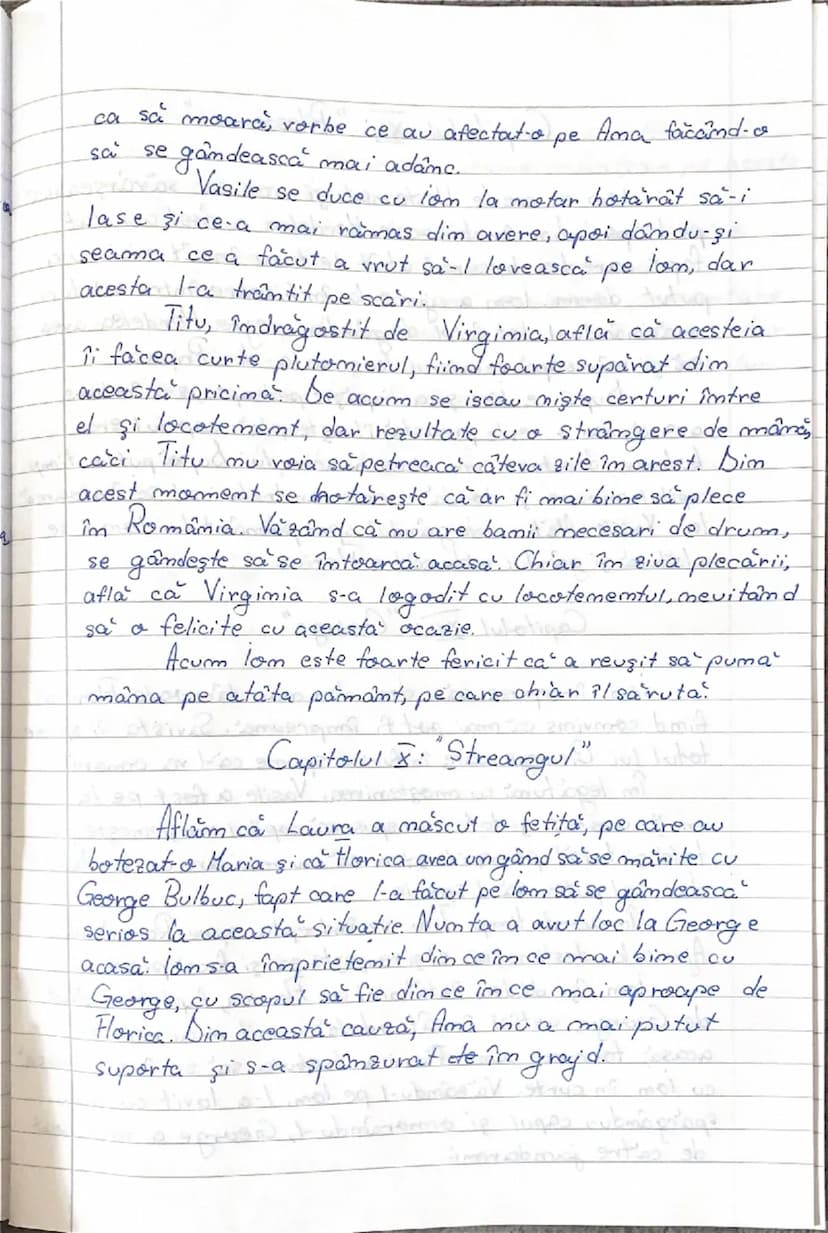 ca să moară, vorbe ce au afectat-o pe Ana făcând-o
să se gândească mai adânc.
Vasile se duce cu Ion la notar hotărât să-i
lase și ce-a mai rămas din avere, apoi dându-și
seama ce a făcut a vrut să-l lovească pe Ion, dar
acesta l-a trântit pe scări.
Titu, îndrăgostit de Virginia, află că acesteia
îi făcea curte plutonierul, fiind foarte supărat din
această pricină. De acum se iscau niște certuri între
el și locotenent, dar rezultate cu o strângere de mână,
căci Titu nu voia să petreacă câteva zile în arest. Din
acest moment se hotărește că ar fi mai bine să plece
în România. Văzând că nu are banii necesari de drum,
se gândește să se întoarcă acasă. Chiar în ziua plecării,
află că Virginia s-a logodit cu locotenentul, nevitând
să o felicite cu această ocazie.
Acum Ion este foarte fericit că a reușit să pună
mâna pe atâta pământ, pe care chiar îl sărută.
Capitolul X: "Streangul"
Aflăm că Laura a născut o fetită, pe care au
botezat-o Maria și că Florica avea un gând să se mărite cu
George Bulbuc, fapt care l-a făcut pe Ion să se gândească
serios la această situație. Nunta a avut loc la George
acasă. Ion s-a împrietenit din ce în ce mai bine cu
George, cu scopul să fie din ce în ce mai aproape de
Florica. Din această cauză, Ana nu a mai putut
suporta și s-a spânzurat în grajd.